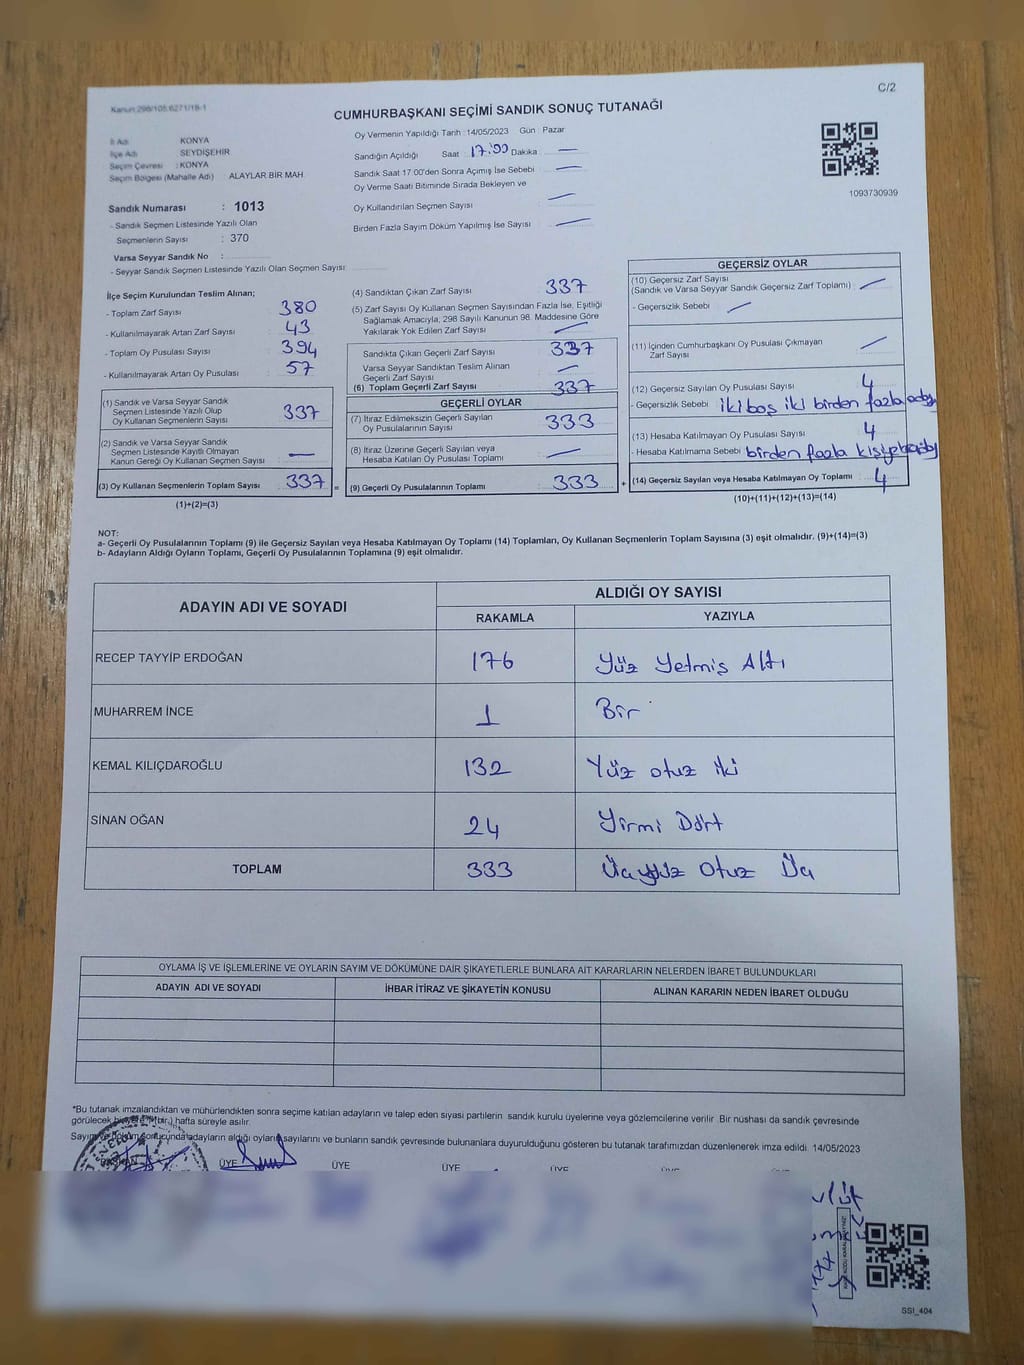 Kanun:298/105;6271/18-1
C/2
CUMHURBAŞKANI SEÇİMİ SANDIK SONUÇ TUTANAĞI
İl Adı KONYA
İlçe Adı SEYDİŞEHİR
Seçim Çevresi : KONYA
Seçim Bölgesi (Mahalle Adı) ALAYLAR BİR MAH.
Sandık Numarası : 1013
- Sandık Seçmen Listesinde Yazılı Olan
Seçmenlerin Sayısı : 370
Varsa Seyyar Sandık No :
- Seyyar Sandık Seçmen Listesinde Yazılı Olan Seçmen Sayısı:
Oy Vermenin Yapıldığı Tarih :14/05/2023 Gün : Pazar
Sandığın Açıldığı Saat 17:00 Dakika : —
Sandık Saat 17:00'den Sonra Açımış İse Sebebi : —
Oy Verme Saati Bitiminde Sırada Bekleyen ve
Oy Kullandırılan Seçmen Sayısı : —
Birden Fazla Sayım Döküm Yapılmış İse Sayısı : —
1093730939
İlçe Seçim Kurulundan Teslim Alınan;
- Toplam Zarf Sayısı : 380
- Kullanılmayarak Artan Zarf Sayısı : 43
- Toplam Oy Pusulası Sayısı : 394
- Kullanılmayarak Artan Oy Pusulası : 57
(1) Sandık ve Varsa Seyyar Sandık
Seçmen Listesinde Yazılı Olup
Oy Kullanan Seçmenlerin Sayısı : 337
(2) Sandık ve Varsa Seyyar Sandık
Seçmen Listesinde Kayıtlı Olmayan
Kanun Gereği Oy Kullanan Seçmen Sayısı : —
(3) Oy Kullanan Seçmenlerin Toplam Sayısı : 337 =
(1)+(2)=(3)
(4) Sandıktan Çıkan Zarf Sayısı : 337
(5) Zarf Sayısı Oy Kullanan Seçmen Sayısından Fazla İse, Eşitliği
Sağlamak Amacıyla, 298 Sayılı Kanunun 98. Maddesine Göre
Yakılarak Yok Edilen Zarf Sayısı : —
Sandıkta Çıkan Geçerli Zarf Sayısı : 337
Varsa Seyyar Sandıktan Teslim Alınan
Geçerli Zarf Sayısı : —
(6) Toplam Geçerli Zarf Sayısı : 337
GEÇERLİ OYLAR
(7) İtiraz Edilmeksizin Geçerli Sayılan
Oy Pusulalarının Sayısı : 333
(8) İtiraz Üzerine Geçerli Sayılan veya
Hesaba Katılan Oy Pusulası Toplamı : —
(9) Geçerli Oy Pusulalarının Toplamı : 333 +
GEÇERSİZ OYLAR
(10) Geçersiz Zarf Sayısı
(Sandık ve Varsa Seyyar Sandık Geçersiz Zarf Toplamı) : —
- Geçersizlik Sebebi : —
(11) İçinden Cumhurbaşkanı Oy Pusulası Çıkmayan
Zarf Sayısı : —
(12) Geçersiz Sayılan Oy Pusulası Sayısı : 4
- Geçersizlik Sebebi : iki boş iki birden fazla
(13) Hesaba Katılmayan Oy Pusulası Sayısı : 4
- Hesaba Katılmama Sebebi : birden fazla kişiye
(14) Geçersiz Sayılan veya Hesaba Katılmayan Oy Toplamı : 4
(10)+(11)+(12)+(13)=(14)
NOT:
a- Geçerli Oy Pusulalarının Toplamı (9) ile Geçersiz Sayılan veya Hesaba Katılmayan Oy Toplamı (14) Toplamları, Oy Kullanan Seçmenlerin Toplam Sayısına (3) eşit olmalıdır. (9)+(14)=(3)
b- Adayların Aldığı Oyların Toplamı, Geçerli Oy Pusulalarının Toplamına (9) eşit olmalıdır.
ADAYIN ADI VE SOYADI ALDIĞI OY SAYISI
RAKAMLA YAZIYLA
RECEP TAYYİP ERDOĞAN 176 Yüz Yetmiş Altı
MUHARREM İNCE 1 Bir
KEMAL KILIÇDAROĞLU 132 Yüz otuz iki
SİNAN OĞAN 24 Yirmi Dört
TOPLAM 333 Üçyüz Otuz Üç
OYLAMA İŞ VE İŞLEMLERİNE VE OYLARIN SAYIM VE DÖKÜMÜNE DAİR ŞİKAYETLERLE BUNLARA AİT KARARLARIN NELERDEN İBARET BULUNDUKLARI
ADAYIN ADI VE SOYADI İHBAR İTİRAZ VE ŞİKAYETİN KONUSU ALINAN KARARIN NEDEN İBARET OLDUĞU
*Bu tutanak imzalandıktan ve mühürlendikten sonra seçime katılan adayların ve talep eden siyasi partilerin sandık kurulu üyelerine veya gözlemcilerine verilir. Bir nüshası da sandık çevresinde
görülecek bir yere 1 (bir) hafta süreyle asılır.
Sayım ve döküm sonucunda adayların aldığı oyların sayılarını ve bunların sandık çevresinde bulunanlara duyurulduğunu gösteren bu tutanak tarafımızdan düzenlenerek imza edildi. 14/05/2023
BAŞKAN ÜYE ÜYE ÜYE ÜYE ÜYE
SSI_404